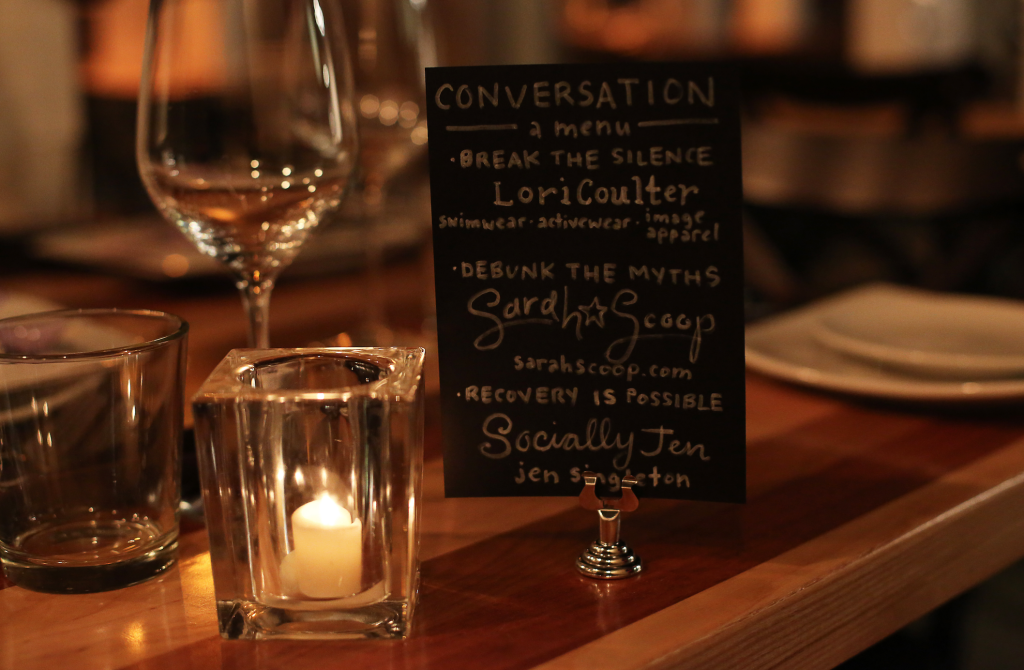 CONVERSATION
a menu
· BREAK THE SILENCE
Lori Coulter
swimwear · activewear · image apparel
· DEBUNK THE MYTHS
Sarah☆Scoop
sarahscoop.com
· RECOVERY IS POSSIBLE
Socially Jen
jen singleton